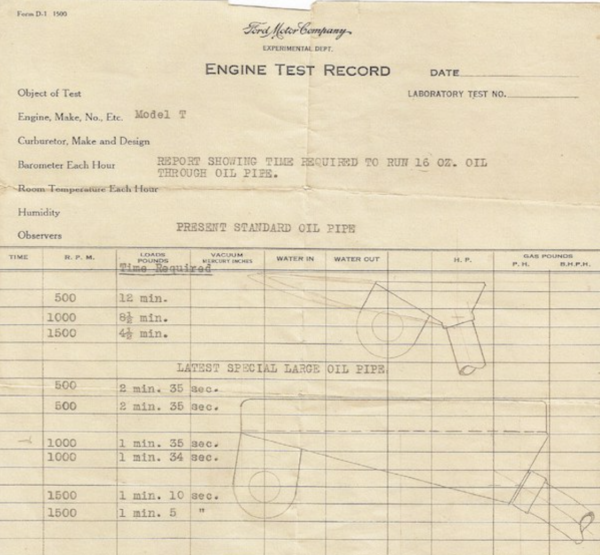 Form D-1 1500
Ford Motor Company
EXPERIMENTAL DEPT.
ENGINE TEST RECORD
DATE
LABORATORY TEST NO.
Object of Test
Engine, Make, No., Etc. Model T
Carburetor, Make and Design
Barometer Each Hour REPORT SHOWING TIME REQUIRED TO RUN 16 OZ. OIL
THROUGH OIL PIPE.
Room Temperature Each Hour
Humidity
PRESENT STANDARD OIL PIPE
Observers
TIME R. P. M. LOADS POUNDS VACUUM MERCURY INCHES WATER IN WATER OUT H. P. GAS POUNDS P. H. B.H.P.H.
Time Required
500 12 min.
1000 8½ min.
1500 4½ min.
LATEST SPECIAL LARGE OIL PIPE
500 2 min. 35 sec.
500 2 min. 35 sec.
1000 1 min. 35 sec.
1000 1 min. 34 sec.
1500 1 min. 10 sec.
1500 1 min. 5 "